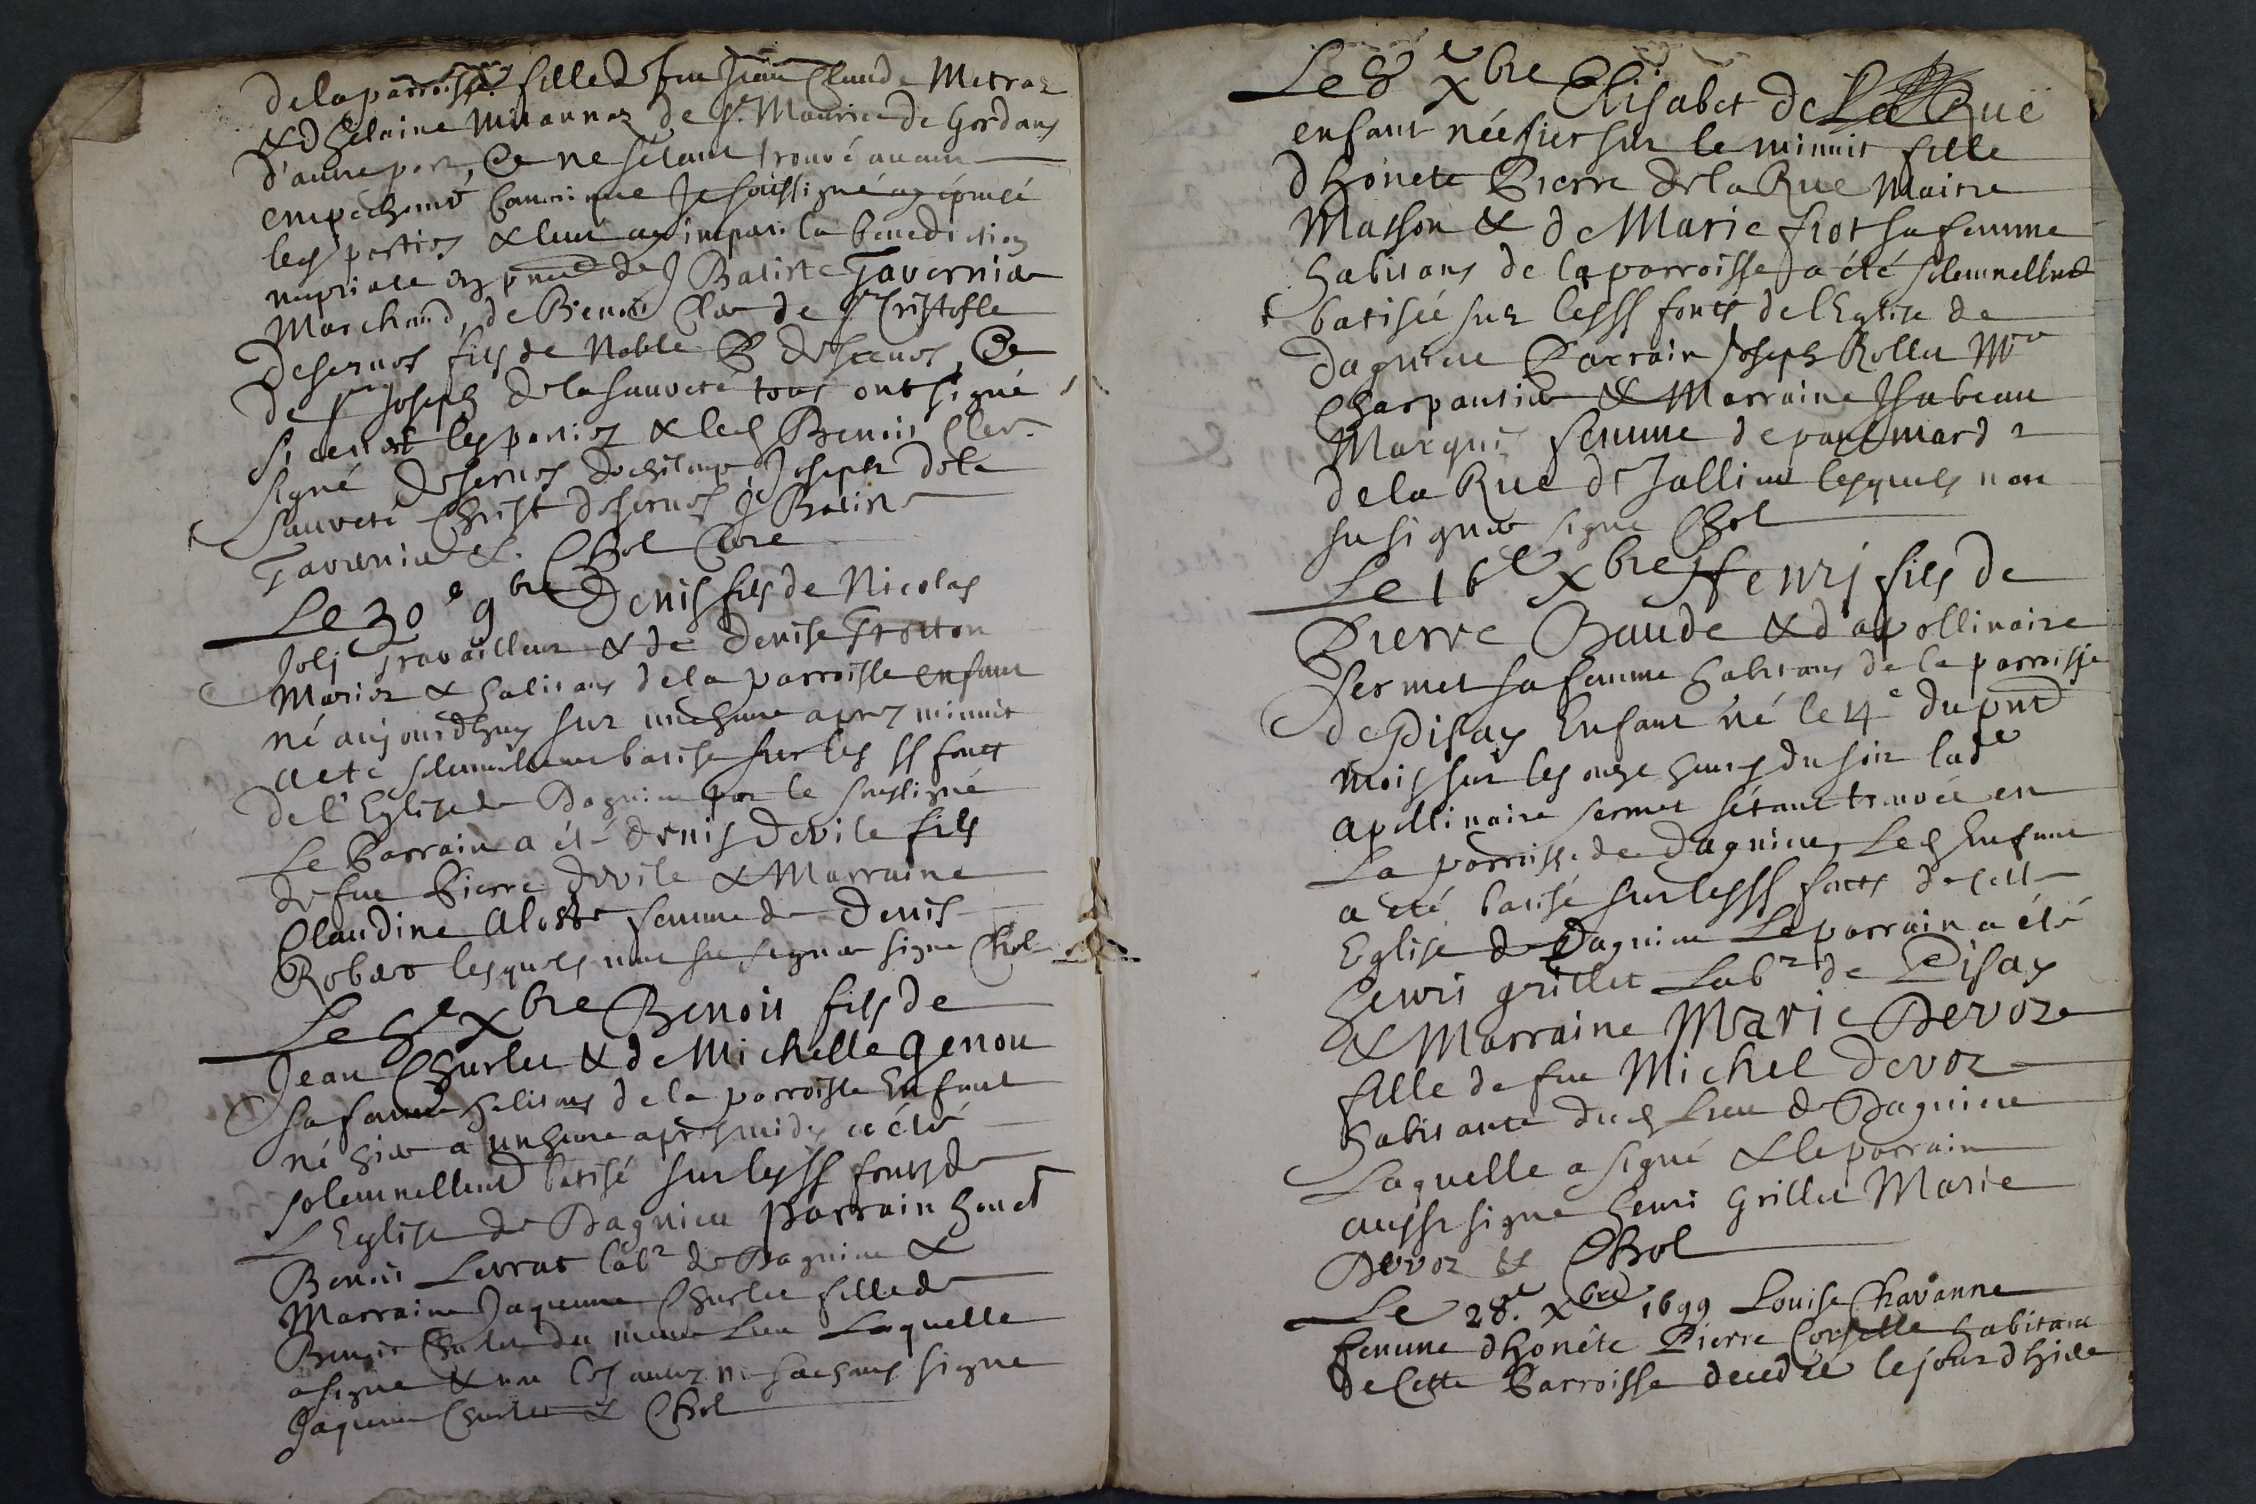 de la parroisse fille de feu Jean Claude Metraz
& d helaine de St. Maurice de Gordans
d'autre part, Ce ne sétant trouvé aucun
empéchemt Canonique Je soussigné ay épousé
les parties & leur ay imparti la benediction
nuptiale en pnce de J Batiste Tavernier
Marchand, de Benoit Cler de Sr Cristofle
Desernos fils de Noble B desernos, Et
de Sr Joseph de la Sauveté tous ont signé
si ce n'est les parties & led Benoit Cler.
signé desernos Joseph de la
Sauveté Christ desernos J Batiste
Tavernier &. Chol Cure
Le 30e 9bre Denis fils de Nicolas
Jolj Travailleur & de Denise Trotton
Mariez & habitans de la parroisse enfant
né aujourdhuy sur une heure apres minuit
a eté solemnellemt batisé sur les SS fonts
de l'Eglise de Dagnieu par le soussigné
Le Parrain a été denis Devile fils
de feu Pierre Devile & Marraine
Claudine femme de Denis
Robert lesquels n'ont su signer signé Chol
Le 5e Xbre Benoit fils de
Jean Churlet & de Michelle Genou
sa femme habitans de la parroisse Enfant
né hier a une heure aprés midy a été
solemnellemt batisé sur les SS fonts de
L'Eglise de Dagnieu Parrain honet
Benoit Levrat labr de Dagnieu &
Marraine Jaquema Churlet fille de
Benoit Churlet du meme Lieu Laquelle
a signé & non les autres ne sachans signer
Jaquema Churlet & Chol
Le 8e Xbre Elisabet de La Rue
enfant née hier sur le minuit fille
d honéte Pierre de la Rue Maitre
Masson & de Marie fiot sa femme
habitans de la parroisse a été solemnellemt
batisée sur les SS fonts de l'Eglise de
Dagnieu Parrain Joseph Rollet Mre
Charpantier & Marraine Isabeau
Marquis femme de
de la Rue de Jallieu lesquels n'ont
su signer signé Chol
Le 16e Xbre Henrj fils de
Pierre Baude & d apollinaire
Sermet sa femme habitans de la parroisse
de Pisay Enfant né le 14e du pnt
mois sur les onze heures du soir lade
apollinaire sermet s'étant trouvée en
La parroisse de Dagnieu, Led Enfant
a été batisé sur les SS fonts de lad
Eglise de Dagnieu Le parrain a été
henri grillet Labr de Pisay
& Marraine Marie Devoz
fille de feu Michel Devoz
habitante dud Lieu de Dagnieu
Laquelle a signé & le parrain
aussi signé henri Grillet Marie
Devoz & Chol
Le 28e. Xbre 1699 Louise Chavanne
femme d honéte Pierre Corselle habitant
de Cette Parroisse decedée le jour d hier